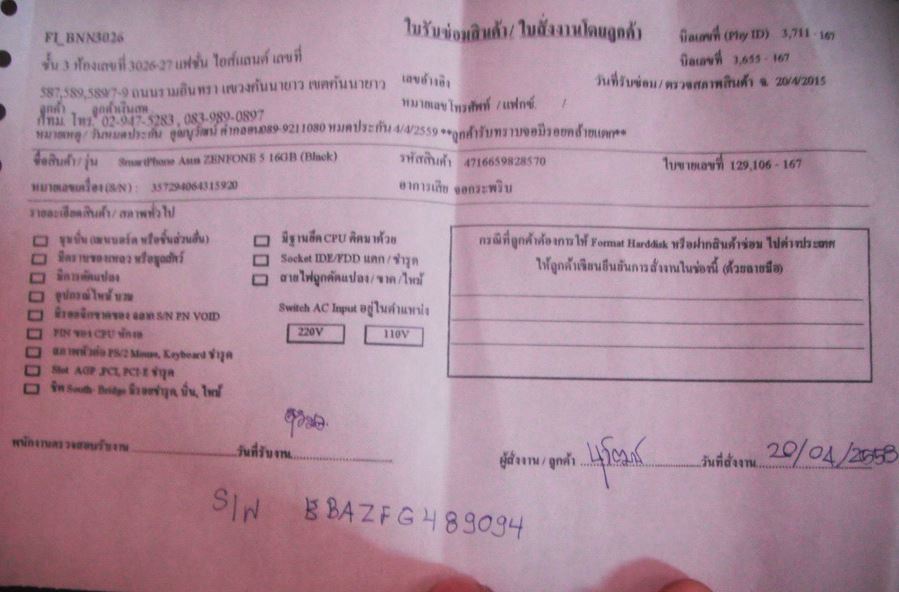 ใบรับซ่อมสินค้า/ ใบสั่งงานโดยลูกค้า
FI_BNN3026
บิลเลขที่ (Play ID) 3,711 - 167
บิลเลขที่ 3,655 - 167
ชั้น 3 ห้องเลขที่ 3026-27 แฟชั่น ไอส์แลนด์ เลขที่
587,589,589/7-9 ถนนรามอินทรา แขวงคันนายาว เขตคันนายาว
เลขอ้างอิง
วันที่รับซ่อม/ตรวจสภาพสินค้า จ. 20/4/2015
ลูกค้า ลูกค้าเงินสด
หมายเลขโทรศัพท์ /แฟกซ์. /
กทม. โทร. 02-947-5283 , 083-989-0897
หมายเหตุ/ วันหมดประกัน 089-9211080 หมดประกัน 4/4/2559 **ลูกค้ารับทราบจอมีรอยคล้ายแตก**
ชื่อสินค้า/ รุ่น SmartPhone Asus ZENFONE 5 16GB (Black) รหัสสินค้า 4716659828570 ใบขายเลขที่ 129,106 - 167
หมายเลขเครื่อง (S/N) : 357294064315920 อาการเสีย จอกระพริบ
รายละเอียดสินค้า/ สภาพทั่วไป
บุบบิ่น (เมนบอร์ด หรือชิ้นส่วนอื่น)
มีคราบของเหลว หรือมูลสัตว์
มีการดัดแปลง
อุปกรณ์ไหม้ บวม
มีรอยฉีกขาดของ ฉลาก S/N PN VOID
PIN ของ CPU หักงอ
สภาพหัวต่อ PS/2 Mouse, Keyboard ชำรุด
Slot AGP ,PCI, PCI-E ชำรุด
ชิพ South- Bridge มีรอยชำรุด, บิ่น, ไหม้
มีฐานยึด CPU ติดมาด้วย
Socket IDE/FDD แตก / ชำรุด
สายไฟถูกดัดแปลง/ ขาด /ไหม้
Switch AC Input อยู่ในตำแหน่ง
220V 110V
กรณีที่ลูกค้าต้องการให้ Format Harddisk หรือฝากสินค้าซ่อม ไปต่างประเทศ
ให้ลูกค้าเขียนยืนยันการสั่งงานในช่องนี้ (ด้วยลายมือ)
พนักงานตรวจสอบรับงาน วันที่รับงาน
ผู้สั่งงาน / ลูกค้า วันที่สั่งงาน 20/04/2558
S/N EBAZFG489094